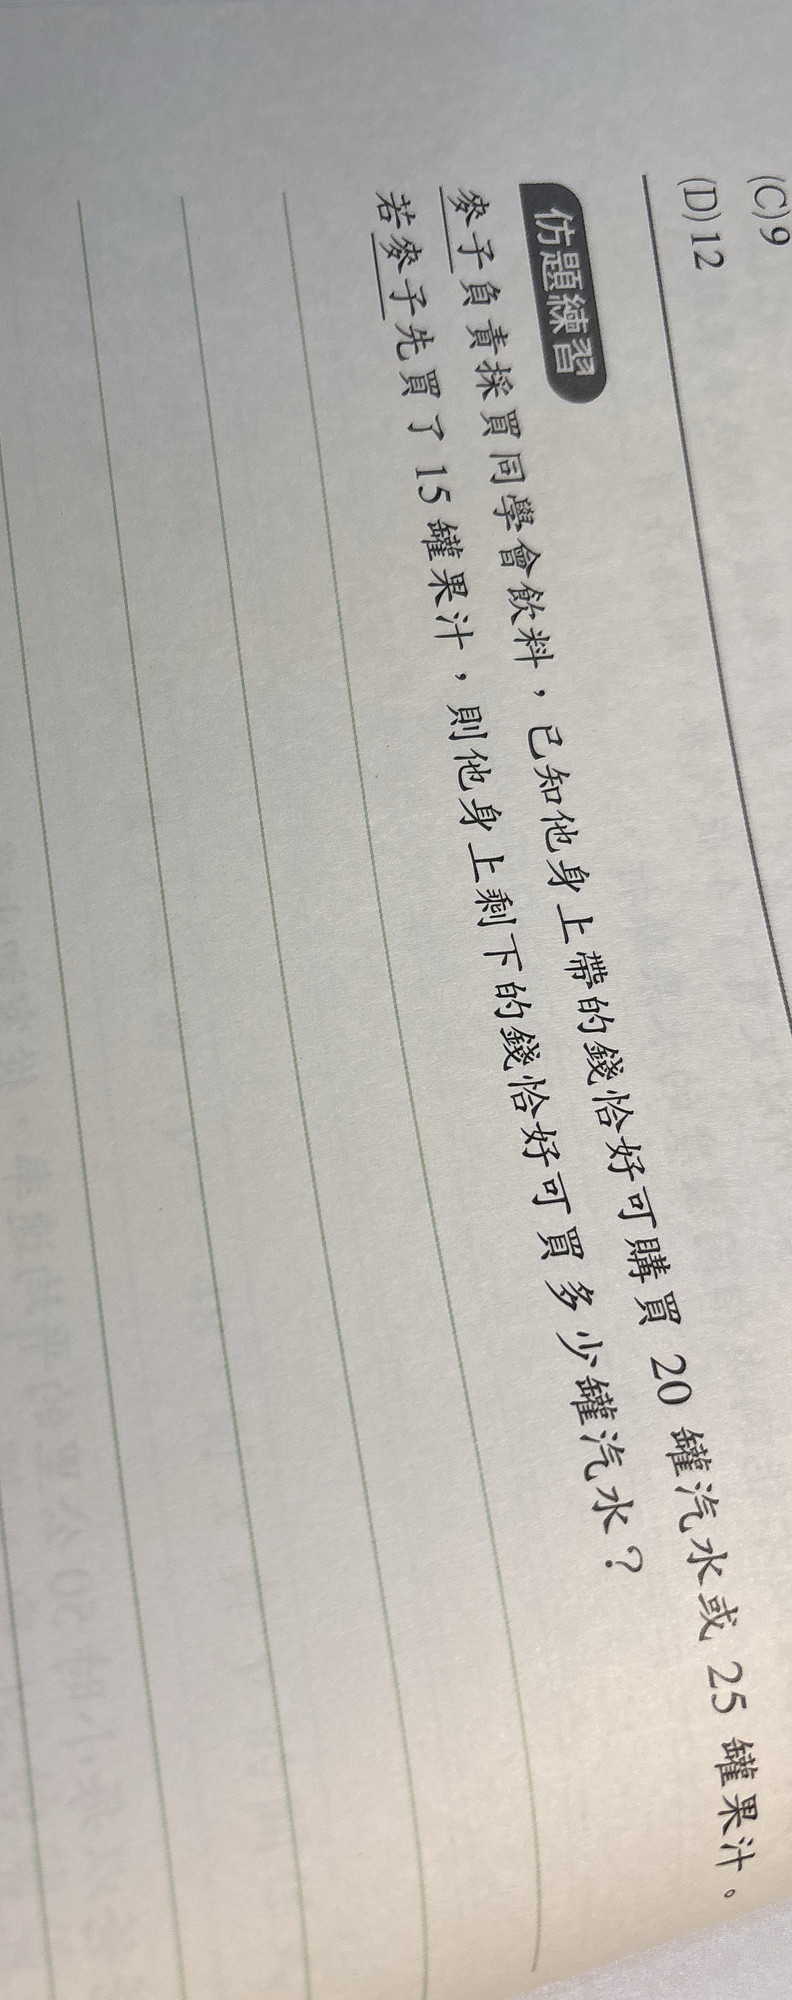 (C)9
(D)12
仿題練習
麥子負責採買同學會飲料，已知他身上帶的錢恰好可購買 20 罐汽水或 25 罐果汁。
若麥子先買了 15 罐果汁，則他身上剩下的錢恰好可買多少罐汽水？